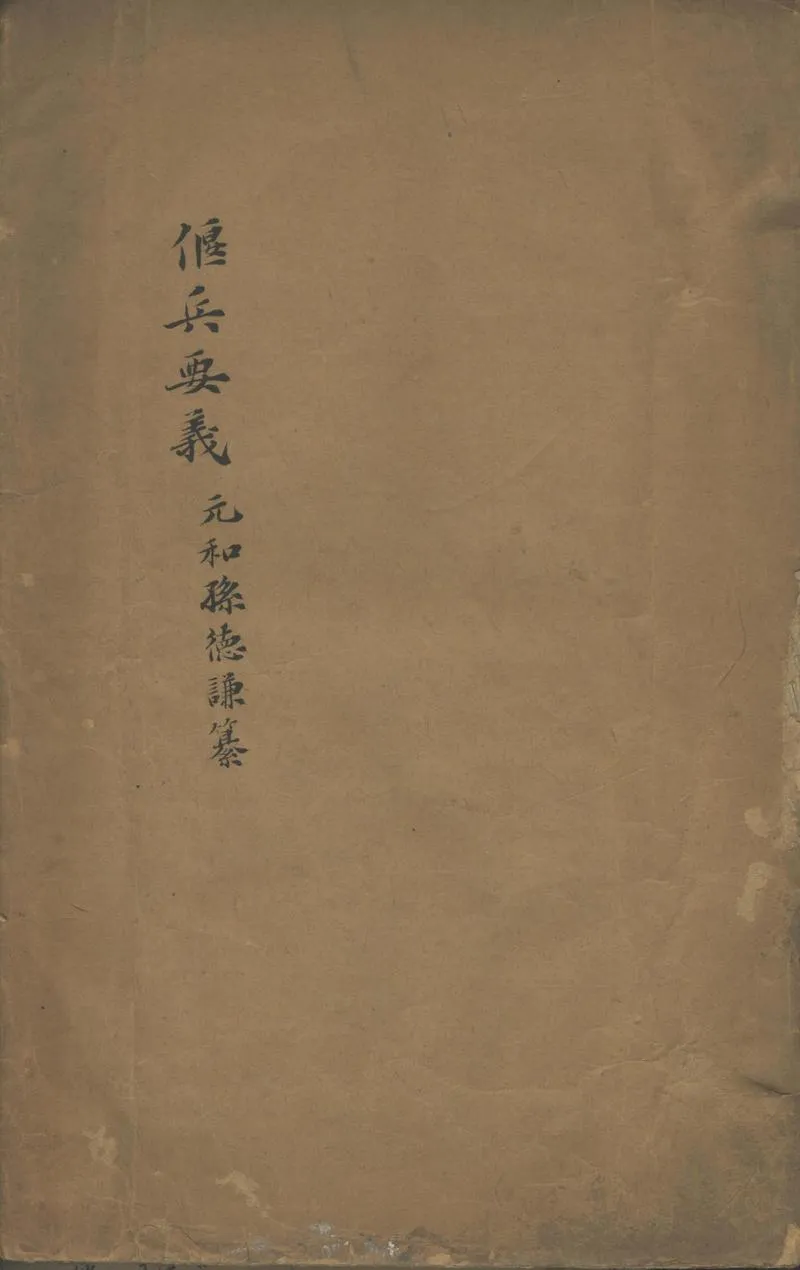 偃兵要義
元和孫德謙纂